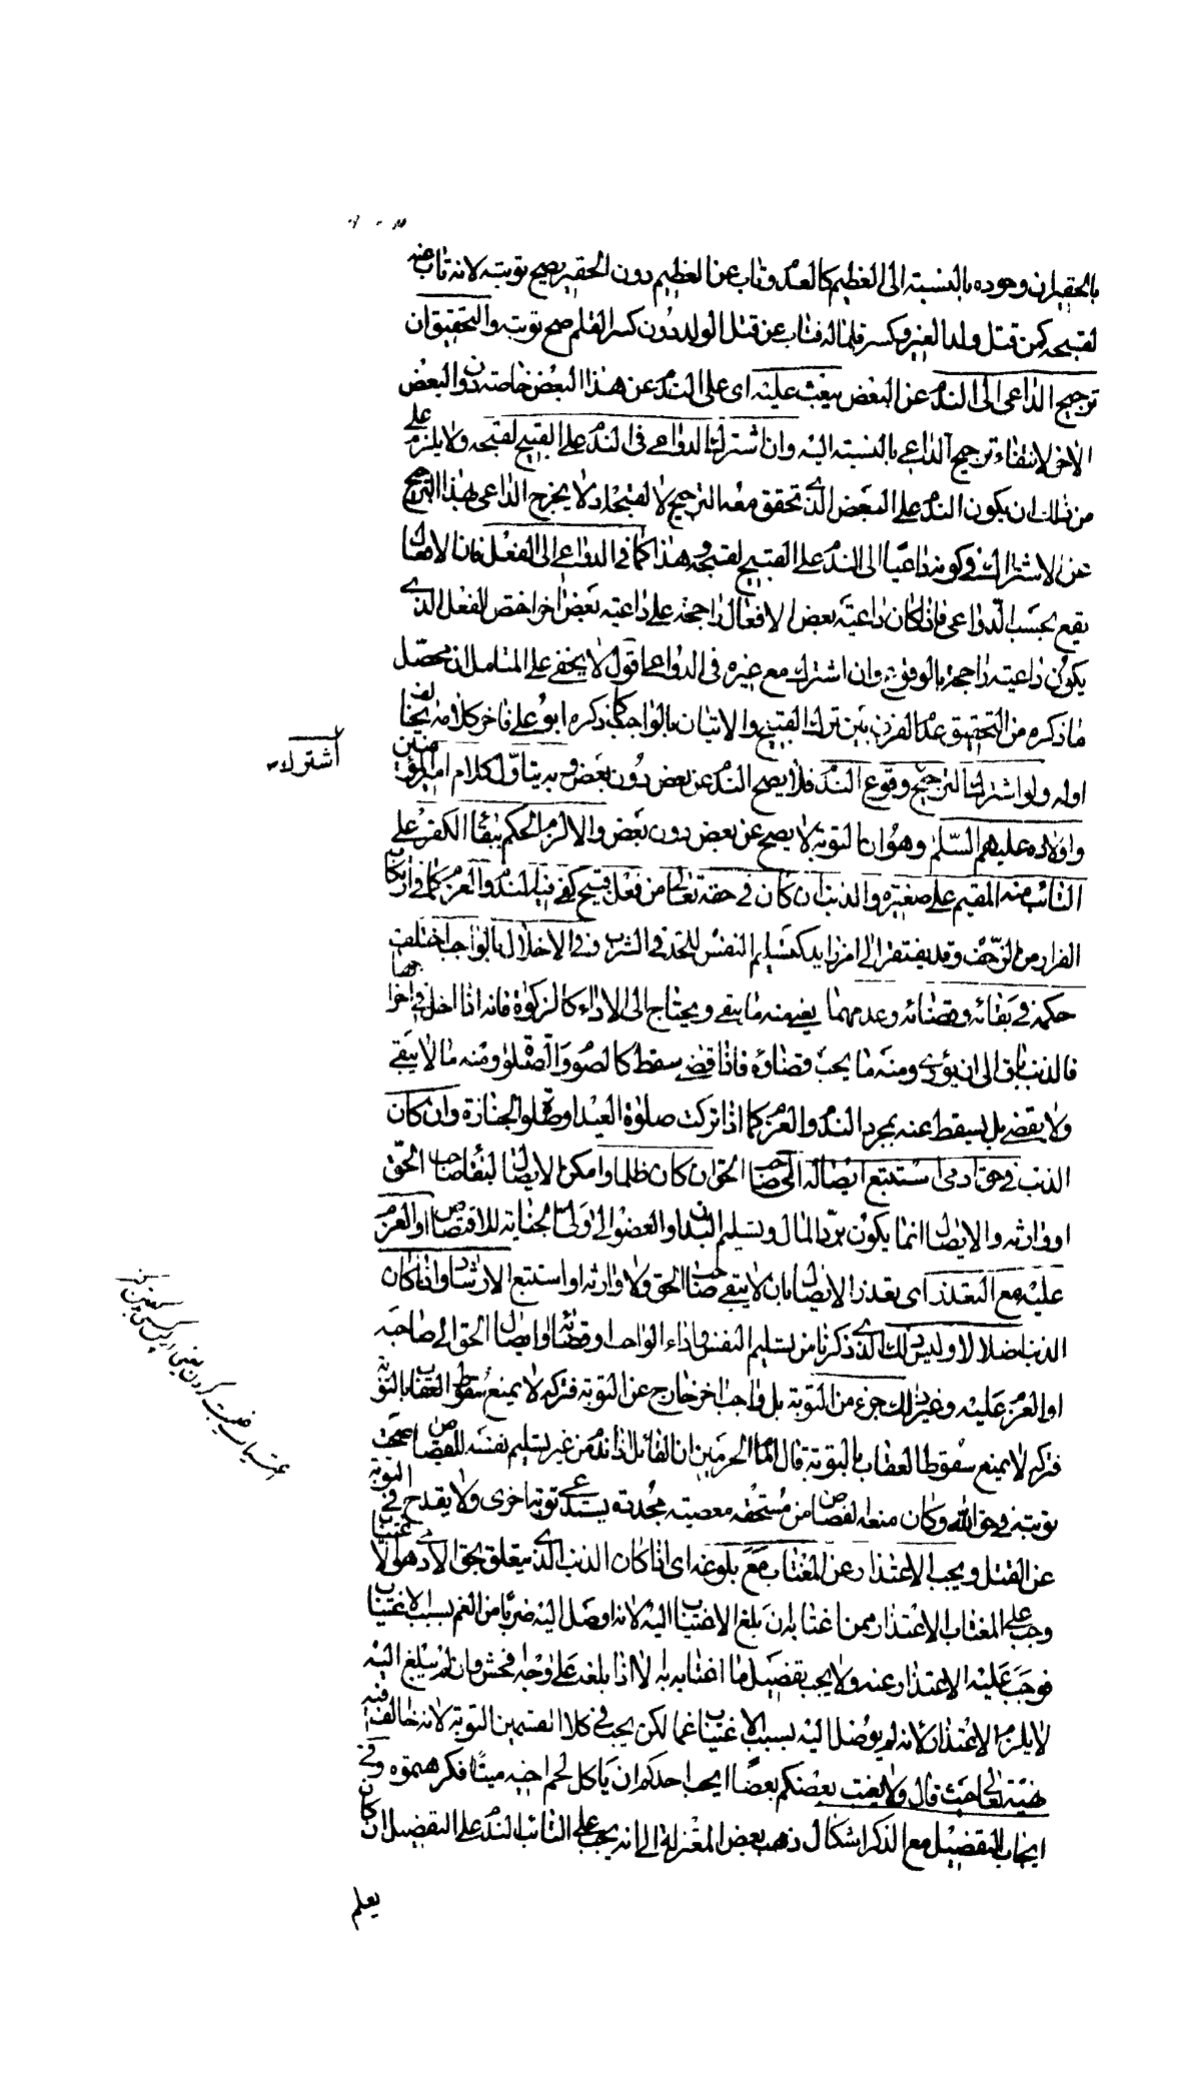 بالحقير ان وجوده بالنسبة الى العظيم كالعدم وتاب عن العظيم دون الحقير يصح توبته لانه تاب عنه
لقبحه كمن قتل ولد الغير وكسر قلما له فتاب عن قتل الولد دون كسر القلم صح توبته والتحقيق ان
ترجيح الداعي الى الندم عن البعض يبعث عليه اى على الندم عن هذا البعض خاصة دون البعض
الاخر لانتفاء ترجيح الداعى بالنسبة اليه وان اشترك الدواعى فى الندم على القبيح لقبحه ولا يلزم
من ذلك ان يكون الندم على البعض الذى تحقق معه الترجيح لا لقبحه اذ لا يخرج الداعى بهذا الترجيح
عن الاشتراك فى كونه داعيا الى الندم على القبيح لقبحه وهذا كما فى الدواعى الى الفعل فان الافعال
يقع بحسب الدواعى فاذا كان داعية بعض الافعال راجحة على داعية بعض اخر اختص الفعل الذى
يكون داعيته راجحة بالوقوع وان اشترك مع غيره فى الدواعى اقول لا يخفى على المتامل ان محصل
ما ذكره من التحقيق عدم الفرق بين ترك القبيح والاتيان بالواجب كما ذكره ابو على فاخر كلامه يخالف
اوله ولو اشترك الترجيح وقوع الندم فلا يصح الندم عن بعض دون بعض وبه يتاول كلام امير المؤمنين
اشترك
واولاده عليهم السلم وهو ان التوبة لا يصح عن بعض دون بعض والا لزم الحكم ببقاء الكفر على
التائب منه المقيم على صغيره والذنب ان كان فى حقه تعالى من فعل قبيح كفى فيه الندم والعزم كما فى ارتكاب
الفرار من الزحف وقد يفتقر الى امر زايد كتسليم النفس للحد فى الشرب و فى الاخلال بالواجب اختلف
حكمه فى بقائه وقضائه وعدمهما يعنى منه ما يبقى ويحتاج الى الاداء كالزكوة فانه اذا اخل فى اخراجها
فالذنب باق الى ان يؤدى ومنه ما يجب قضاؤه فاذا قضى سقط كالصوم والصلوة ومنه ما لا يبقى
ولا يقضى بل يسقط عنه بمجرد الندم والعزم كما اذا تركت صلوة العيد او صلوة الجنازة وان كان
الذنب فى حق ادمى استتبع ايصاله الى صاحب الحق ان كان ظلما وامكن الايصال لبقاء صاحب الحق
او وارثه والايصال انما يكون برد المال وتسليم البدن او العضو الى ولى الجناية للاقتصاص او العزم
عليه مع التعذر اى بعذر الايصال بان لا يبقى صاحب الحق ولا وارثه او استتبع الارشاد وان كان
الذنب اضلالا وليس ذلك الذى ذكرنا من تسليم النفس واداء الواجب او قضائه او ايصال الحق الى صاحبه
او العزم عليه وغير ذلك جزء من التوبة بل واجب اخر خارج عن التوبة فتركه لا يمنع سقوط العقاب بالتوبة
فتركه لا يمنع سقوط العقاب بالتوبة قال امام الحرمين ان القاتل اذا ندم من غير تسليم نفسه للقصاص صحت
توبته فى حق الله وكان منعه القصاص من مستحقه معصية مجددة يستدعى توبة اخرى ولا يقدح فى التوبة
عن القتل ويجب الاعتذار عن المغتاب مع بلوغه اى اذا كان الذنب الذى يتعلق بحق الادمى هو الاغتياب
وجب على المغتاب الاعتذار ممن اغتابه ان بلغ الاغتياب اليه لانه اوصل اليه ضربا من الغم بسبب الاغتياب
فوجب عليه الاعتذار عنه ولا يجب تفصيل ما اغتابه به الا اذا بلغه على وجه افحش وان لم يبلغ اليه
لا يلزم الاعتذار لانه لم يوصل اليه بسبب الاغتياب غما لكن يجب فى كلا القسمين التوبة لانه خالف فيه
نهيه تعالى حيث قال ولا يغتب بعضكم بعضا ايحب احدكم ان ياكل لحم اخيه ميتا فكرهتموه وفى
ايجاب التفصيل مع الذكر اشكال ذهب بعض المعتزلة الى انه يجب على التائب الندم على التفصيل ان كان
يعلم